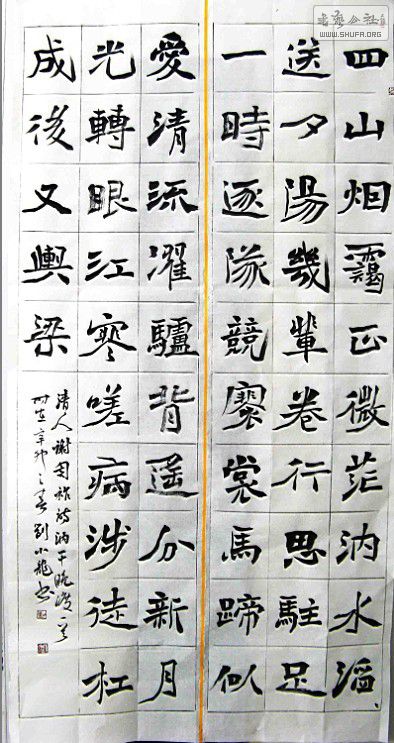 四山烟靄正微茫汭水滔、
送夕陽幾輩卷行思駐足
一時逐隊競褰裳馬蹄似
愛清流濯驢背遥分新月
光轉眼江寒嗟病涉徒杠
成後又輿梁
清人謝國祚詩汭干晚渡一首
时在辛卯之春劉小龍书
书艺公社
WWW.SHUFA.ORG